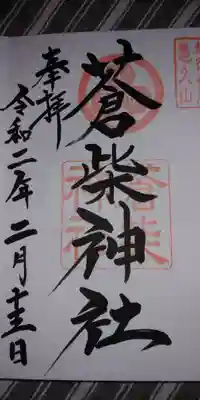 悠久山
蒼柴神社
奉拝
令和二年二月十三日